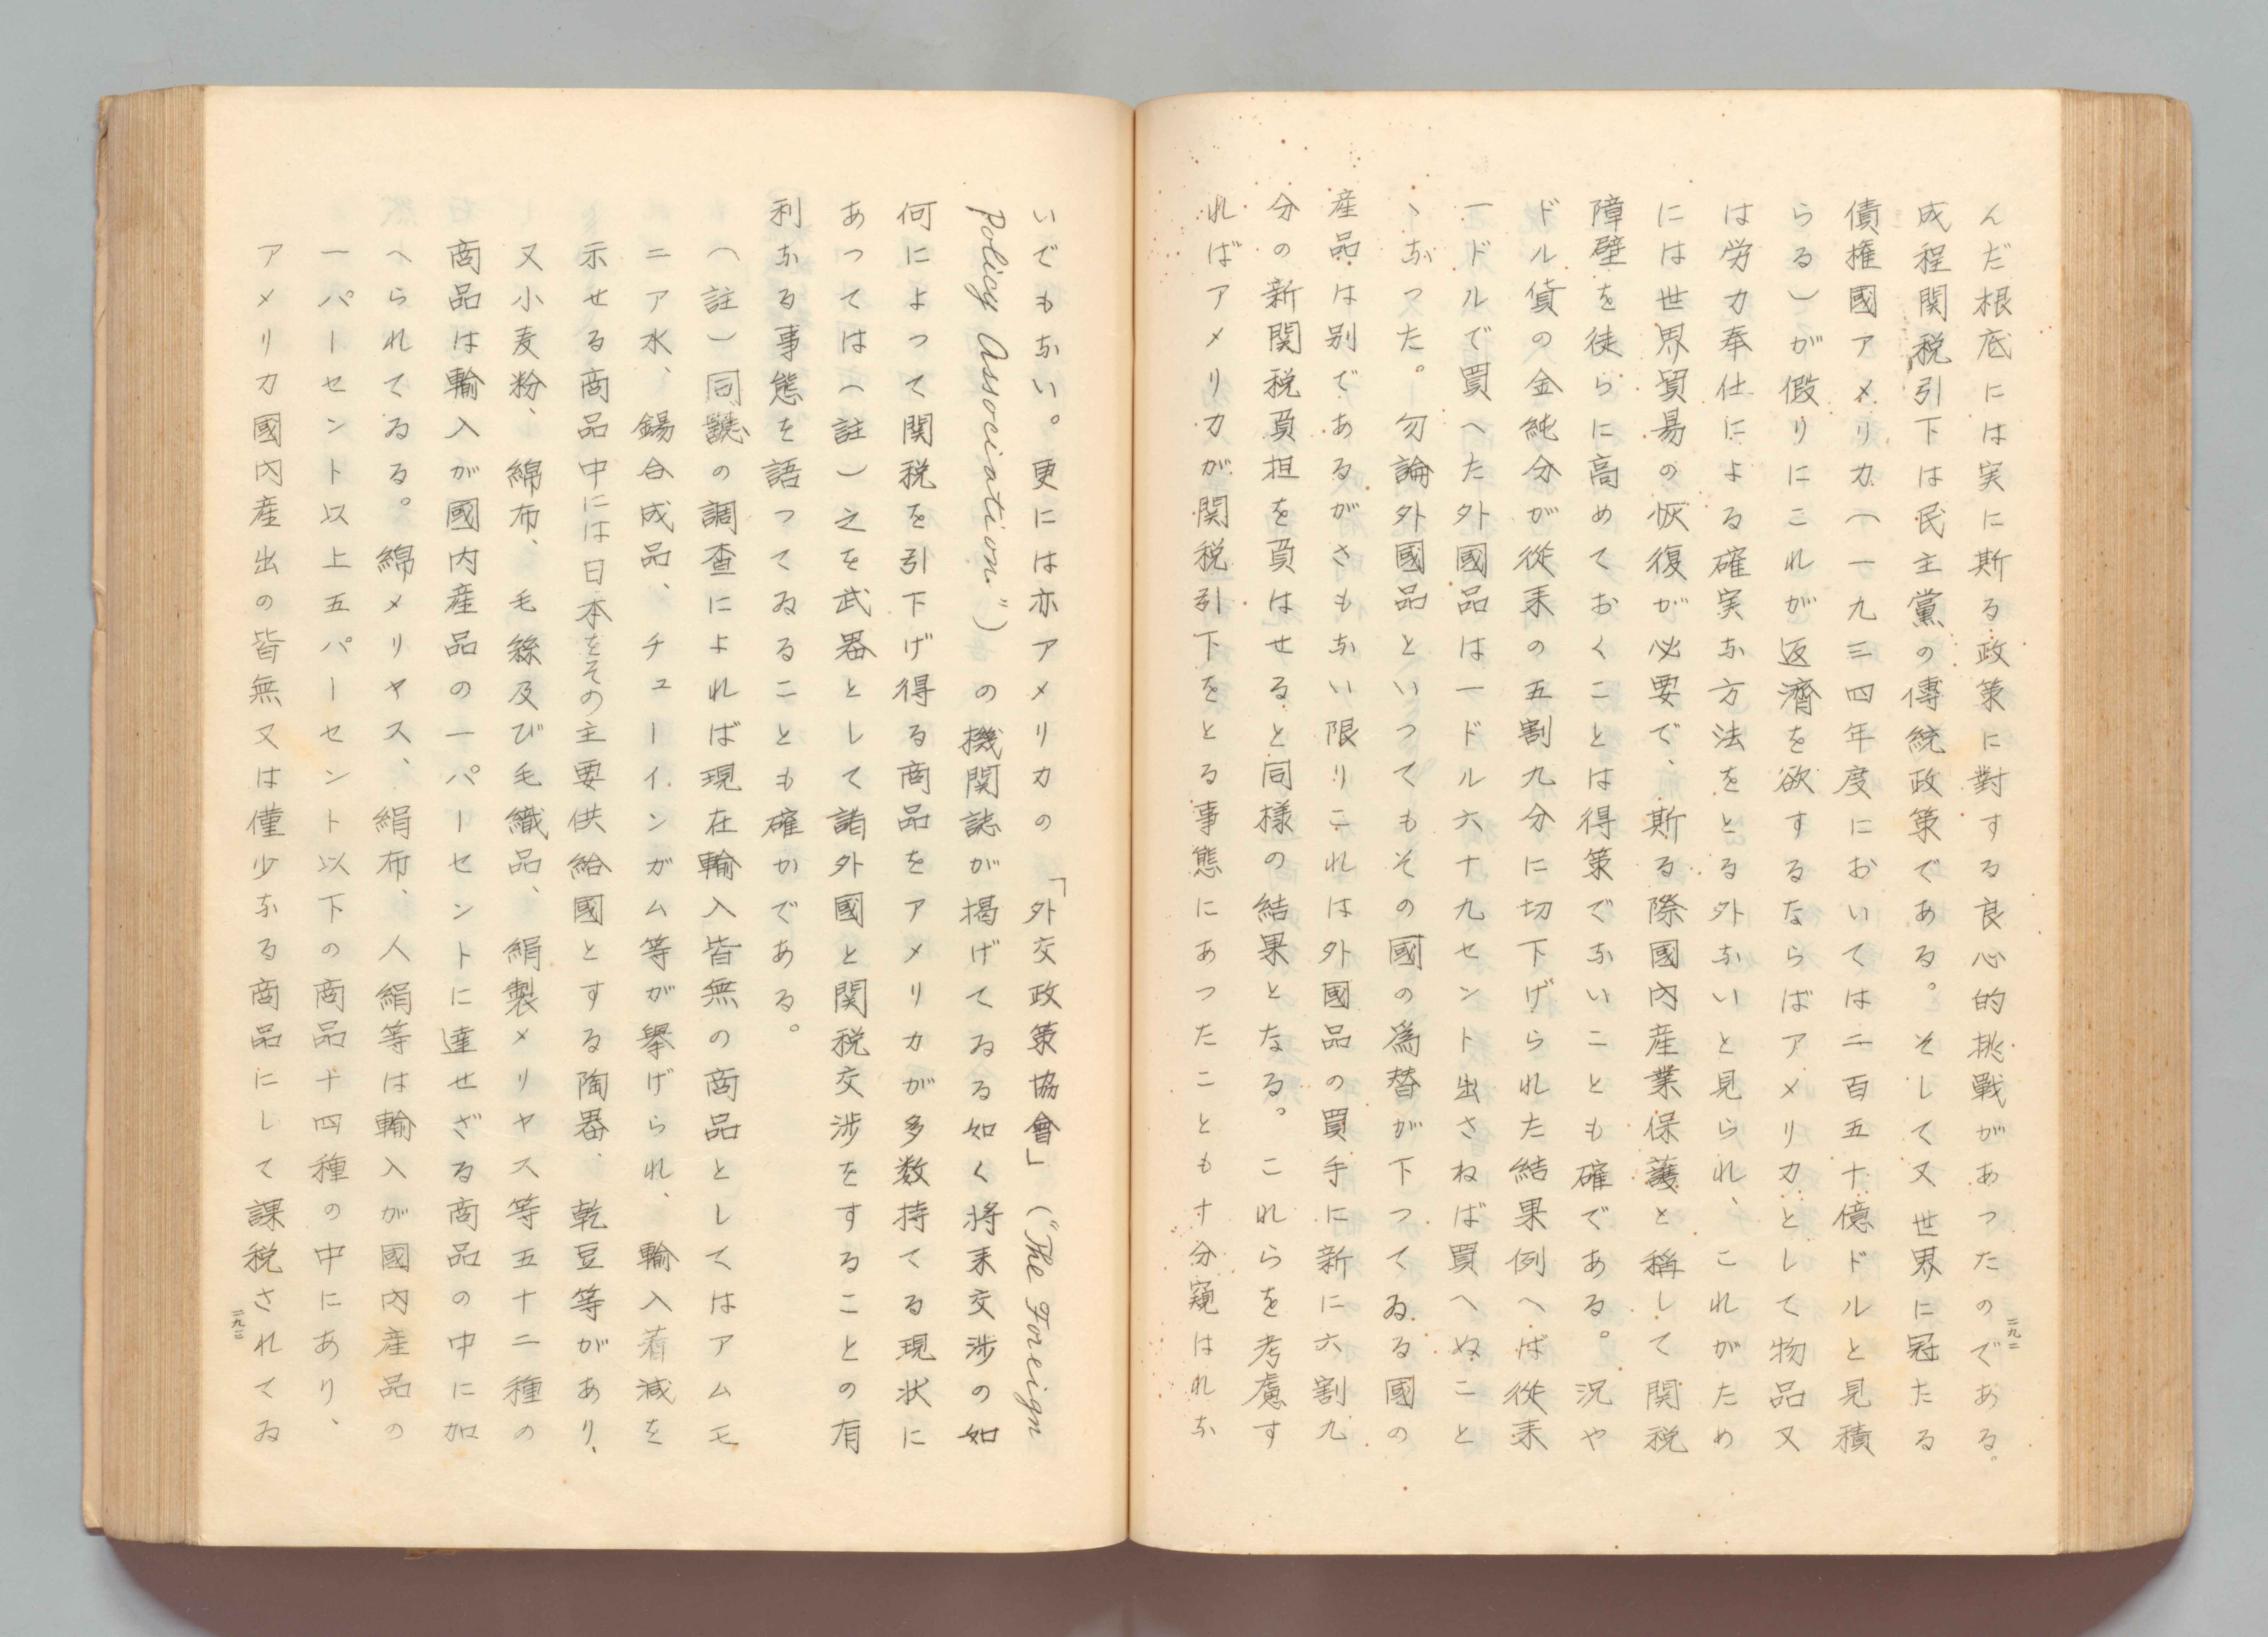 んだ根底には実に斯る政策に對する良心的挑戰があつたのである。
成程関税引下は民主黨の傳統政策である。そして又世界に冠たる
債権國アメリカ（一九三四年度においては二百五十億ドルと見積
らる）が假りにこれが返濟を欲するならばアメリカとして物品又
は労力奉仕による確実な方法をとる外ないと見られ、これがため
には世界貿易の恢復が必要で、斯る際國内産業保護と稱して関税
障壁を徒らに高めておくことは得策でないことも確である。況や
ドル貨の金純分が從来の五割九分に切下げられた結果例へば從来
一ドルで買へた外國品は一ドル六十九セント出さねば買へぬこと
ゝなつた。勿論外國品といつてもその國の為替が下つてゐる國の
産品は別であるがさもない限りこれは外國品の買手に新に六割九
分の新関税負担を負はせると同様の結果となる。これらを考慮す
ればアメリカが関税引下をとる事態にあつたことも十分窺はれな
二九二
いでもない。更には亦アメリカの「外交政策協會」（"The Foreign
Policy Association."）の機関誌が揭げてゐる如く将来交渉の如
何によつて関税を引下げ得る商品をアメリカが多数持てる現状に
あつては（註）之を武器として諸外國と関税交渉をすることの有
利なる事態を語つてゐることも確かである。
（註）同誌の調査によれば現在輸入皆無の商品としてはアムモ
ニア水、錫合成品、チューインガム等が擧げられ、輸入着減を
示せる商品中には日本をその主要供給國とする陶器、乾豆等があり、
又小麦粉、綿布、毛絲及び毛織品、絹製メリヤス等五十二種の
商品は輸入が國内産品の一パーセントに達せざる商品の中に加
へられてゐる。綿メリヤス、絹布、人絹等は輸入が國内産品の
一パーセント以上五パーセント以下の商品十四種の中にあり、
アメリカ國内産出の皆無又は僅少なる商品にして課税されてゐ
二九三